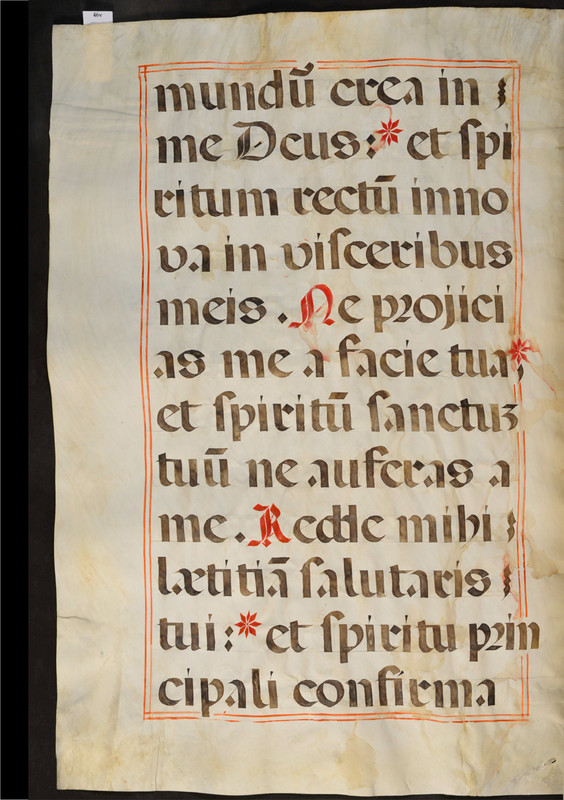 mundū crea in
me Deus: * et ſpi
ritum rectū inno
va in viſceribus
meis. Ne projici
as me a facie tua, *
et ſpiritū ſanctuʒ
tuū ne auferas a
me. Redde mihi
lætitiā ſalutaris
tui: * et ſpiritu prin
cipali confirma